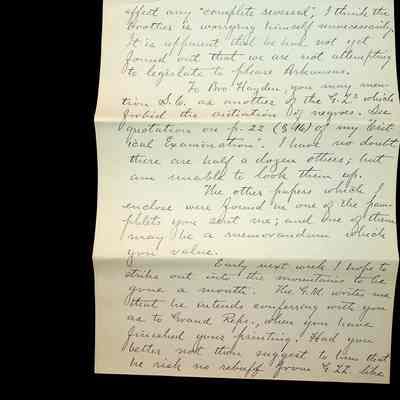 affect any "complete reversal", I think the
Brother is worrying himself unnecessarily.
It is apparent that he has not yet
found out that we are not attempting
to legislate to please Arkansas.
To Bro. Hayden, you may men-
tion S.C. as another of the G.L.s which
forbid the initiation of negroes. See
quotation on p. 22 (§ 46) of my "Crit-
ical Examination". I have no doubt
there are half a dozen others; but
am unable to look them up.
The other papers which I
enclose were found in one of the pam-
phlets you sent me; and one of them
may be a memorandum which
you value.
Early next week I hope to
strike out into the mountains to be
gone a month. The G.M. writes me
that he intends conferring with you
as to Grand Reps., when you have
finished your printing. Had you
better not then suggest to him that
he risk no rebuff from G LL like